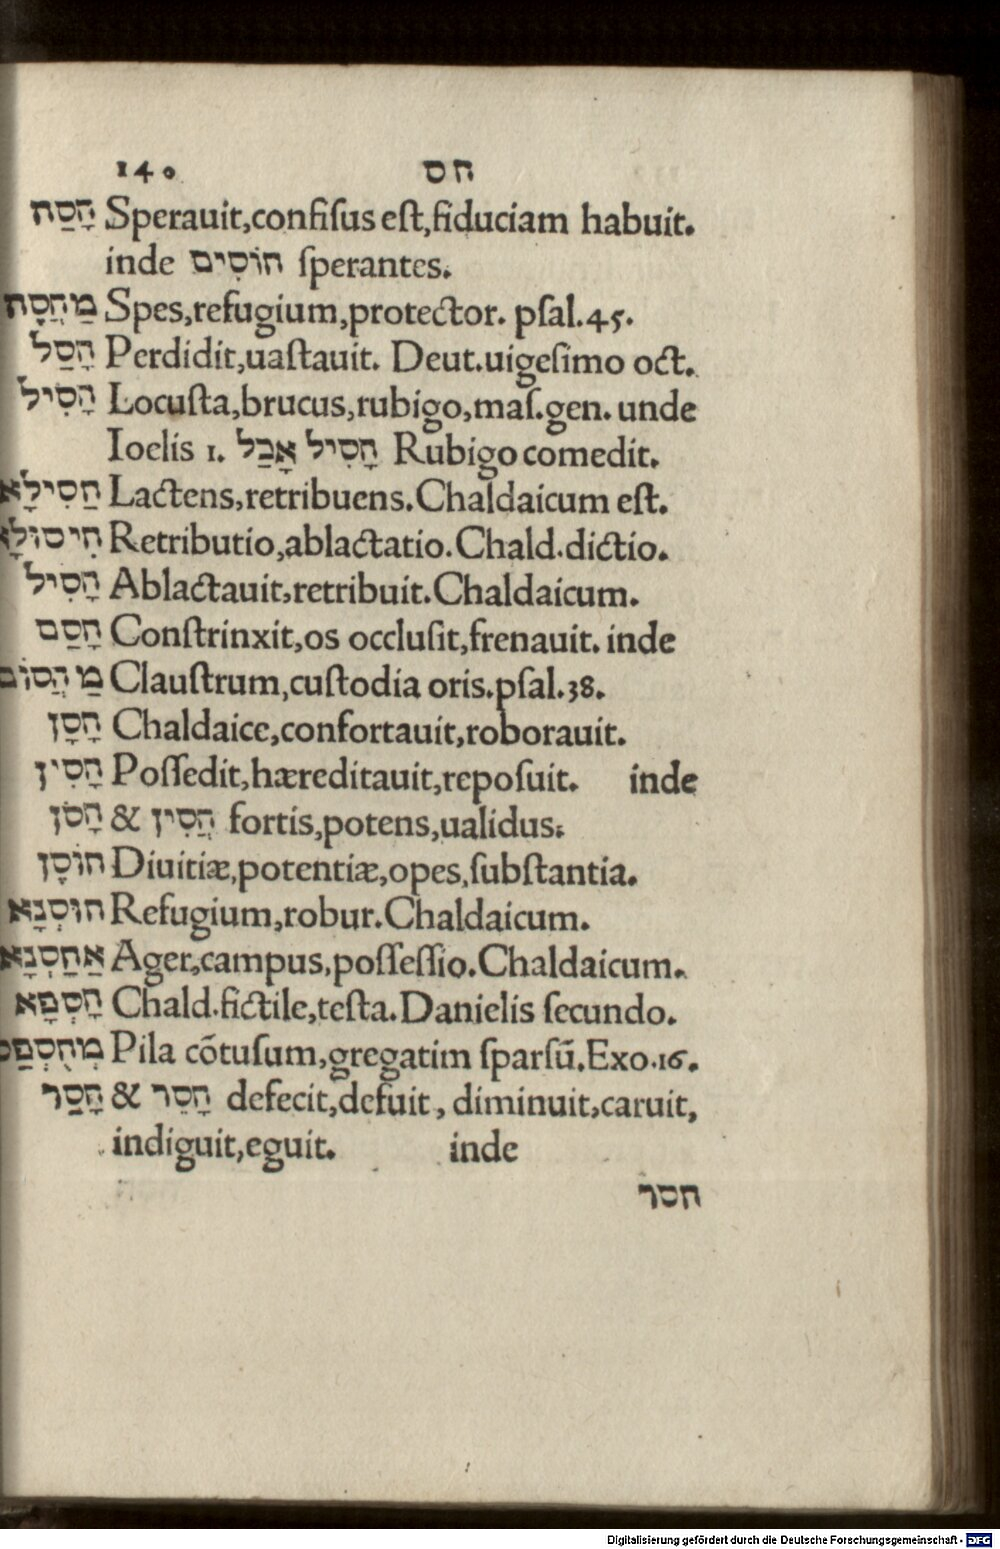 140 חס
חָסַה Sperauit,confiſus eſt,fiduciam habuit.
inde חוֹסִים ſperantes.
מַחֲסָה Spes,refugium,protector. pſal.45.
חָסַל Perdidit,uaſtauit. Deut.uigeſimo oct.
חָסִיל Locuſta,brucus,rubigo,maſ.gen. unde
Ioelis 1. חָסִיל אָכַל Rubigo comedit.
חַסִילָא Lactens,retribuens.Chaldaicum eſt.
חִיסוּלָא Retributio,ablactatio.Chald.dictio.
חָסִיל Ablactauit,retribuit.Chaldaicum.
חָסַם Conſtrinxit,os occluſit,frenauit. inde
מַחֲסוֹם Clauſtrum,cuſtodia oris.pſal.38.
חָסָן Chaldaice,confortauit,roborauit.
חָסִין Poſſedit,hæreditauit,repoſuit. inde
חָסֹן & חֲסִין fortis,potens,ualidus.
חוֹסָן Diuitiæ,potentiæ,opes,ſubſtantia.
חוּסְנָא Refugium,robur.Chaldaicum.
אַחַסְנָא Ager,campus,poſſeſſio.Chaldaicum.
חָסְפָּא Chald.fictile,teſta.Danielis ſecundo.
Pila cõtuſum,gregatim ſparſũ.Exo.16.
חָסַר & חָסֵר defecit,defuit, diminuit,caruit,
indiguit,eguit. inde
חסר
Digitalisierung gefördert durch die Deutsche Forschungsgemeinschaft - DFG